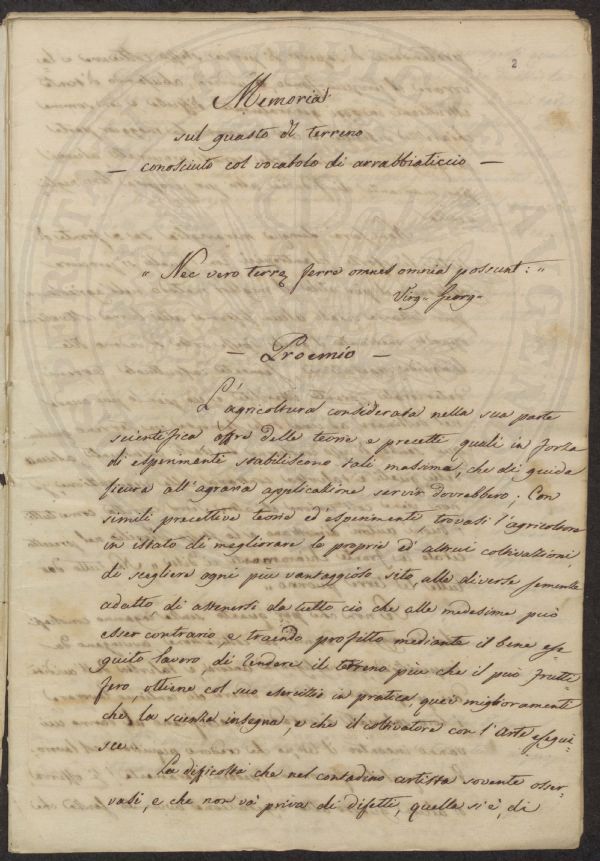 2
Memoria
sul guasto del terreno
— conosciuto col vocabolo di arrabbiaticcio —
" Nec vero terrę ferre omnes omnia possunt: "
Virg. Georg.
— Proemio —
L'agricoltura considerata nella sua parte
scientifica offre delle teorie e precetti quali in forza
di esperimenti stabiliscono tali massime, che di guida
sicura all'agraria applicatione servir dovrebbero. Con
simili precettive teorie ed esperimenti trovasi l'agricoltore
in istato di megliorare le proprie ed altrui coltivazioni,
di scegliere ogni più vantaggioso sito alle diverse sementi
adatto di astenersi da tutto ciò che alle medesime può
esser contrario e traendo profitto mediante il bene ese=
guito lavoro di rendere il terreno più che il può frutti=
fero, ottiene col suo esercizio in pratica, quei miglioramenti
che la scienza insegna, e che il coltivatore con l'arte esegui=
sce.
La difficoltà che nel contadino artista sovente osser=
vasi, e che non và priva di difetti, quella si è, di